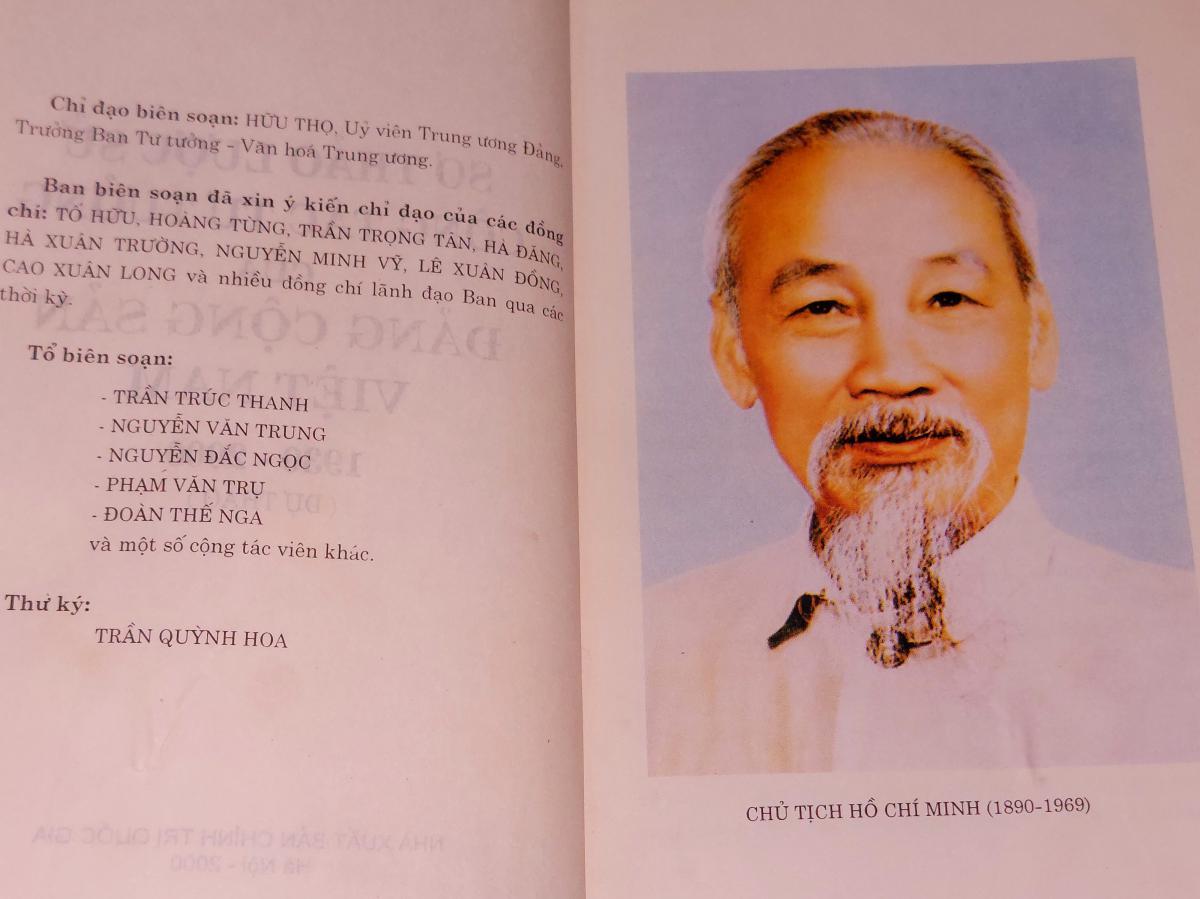 Chỉ đạo biên soạn: HỮU THỌ, Uỷ viên Trung ương Đảng,
Trưởng Ban Tư tưởng - Văn hoá Trung ương.
Ban biên soạn đã xin ý kiến chỉ đạo của các đồng
chí: TỐ HỮU, HOÀNG TÙNG, TRẦN TRỌNG TÂN, HÀ ĐĂNG,
HÀ XUÂN TRƯỜNG, NGUYỄN MINH VỸ, LÊ XUÂN ĐỒNG,
CAO XUÂN LONG và nhiều đồng chí lãnh đạo Ban qua các
thời kỳ.
Tổ biên soạn:
- TRẦN TRÚC THANH
- NGUYỄN VĂN TRUNG
- NGUYỄN ĐẮC NGỌC
- PHẠM VĂN TRỤ
- ĐOÀN THẾ NGA
và một số cộng tác viên khác.
Thư ký:
TRẦN QUỲNH HOA
CHỦ TỊCH HỒ CHÍ MINH (1890-1969)